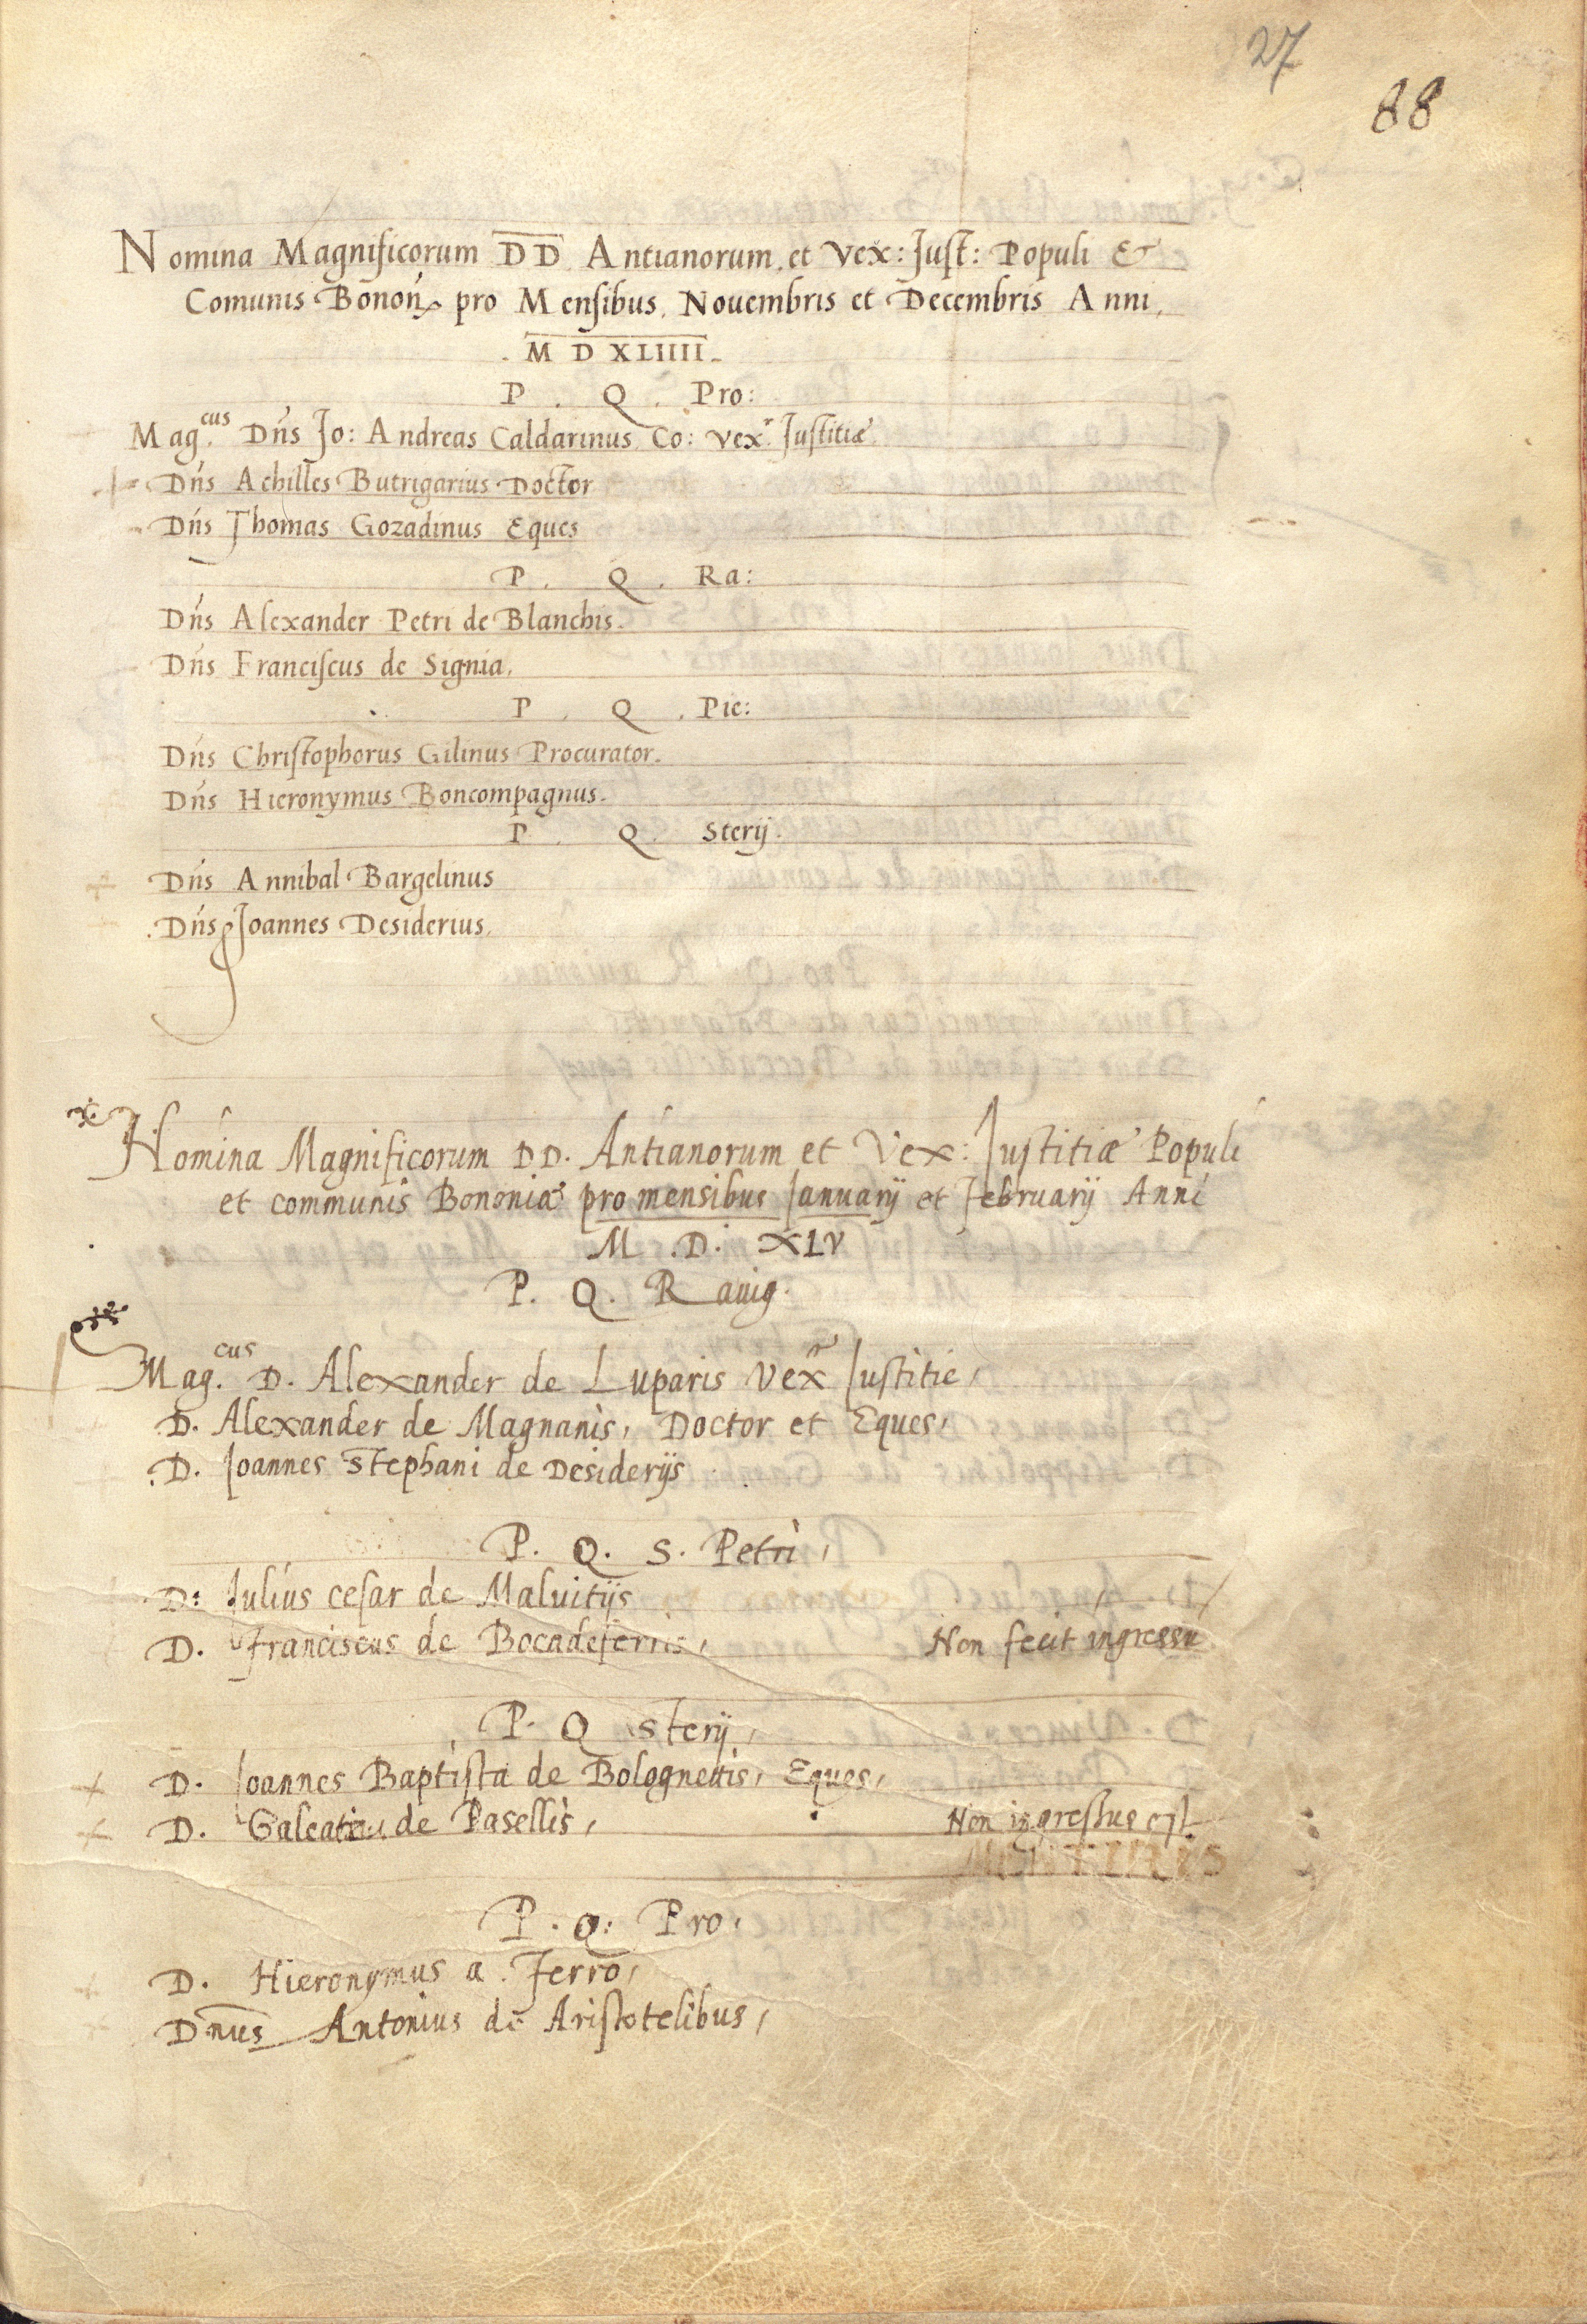 27
88
Nomina Magnificorum DD Antianorum, et Vex: Just: Populi &
Comunis Bonon, pro Mensibus, Novembris et Decembris Anni,
. M D XLIIII.
P . Q . Pro:
Mag.cus Dñs Jo: Andreas Caldarinus Co: vex.r Justitiæ
Dñs Achilles Butrigarius Doctor
Dñs Thomas Gozadinus Eques
P . Q . Ra:
Dñs Alexander Petri de Blanchis.
Dñs Franciscus de Signia.
P . Q . Pie:
Dñs Christophorus Gilinus Procurator.
Dñs Hieronymus Boncompagnus.
P . Q . Sterij.
Dñs Annibal Bargelinus
Dñs Joannes Desiderius.
Nomina Magnificorum DD. Antianorum et Vex: Justitiæ Populi
et communis Bononiæ pro mensibus Januarij et Februarij Anni
M . D . XLV
P. Q. Ravig.
Mag.cus D. Alexander de Luparis Vexr Justitie,
D. Alexander de Magnanis, Doctor et Eques,
D. Joannes Stephani de Desiderijs
P. Q. S. Petri,
D: Julius cesar de Malvitijs
D. Franciscus de Bocadeferris, Non fecit ingressu
P. Q Sterij,
D. Joannes Baptista de Bolognettis, Eques,
D. Galeatius de Pasellis, Non ingressus est
P. Q: Pro,
D. Hieronymus a Ferro,
Dnus Antonius de Aristotelibus,